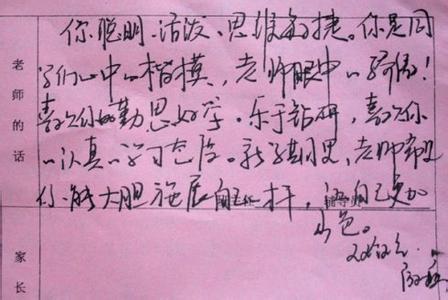 老师的话
你聪明、活泼、思维敏捷。你是同
学们心中的楷模，老师眼中的骄傲！
喜欢你的勤思好学、乐于钻研，喜欢你
的认真的学习态度。新学期里，老师希望
你能大胆施展自己，自己更加
出色。
家长